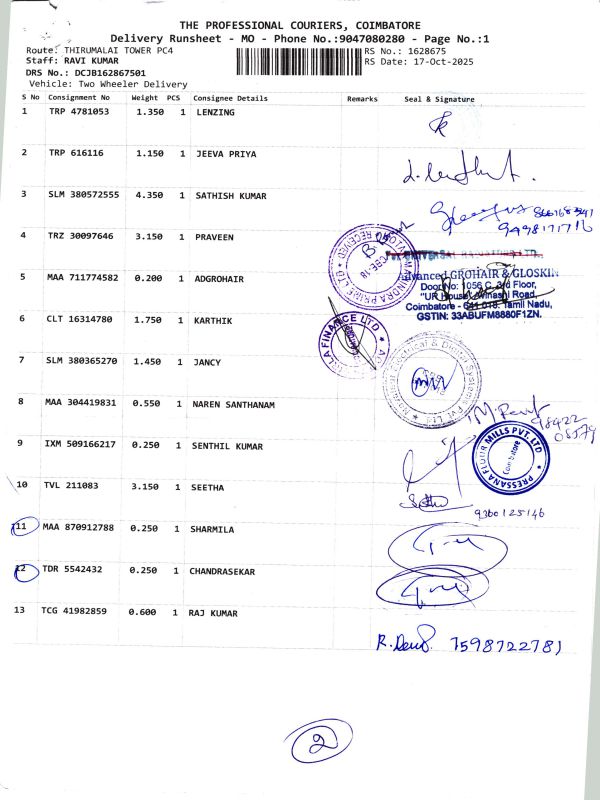 THE PROFESSIONAL COURIERS, COIMBATORE
Delivery Runsheet - MO - Phone No.:9047080280 - Page No.:1
Route: THIRUMALAI TOWER PC4
RS No.: 1628675
Staff: RAVI KUMAR
RS Date: 17-Oct-2025
DRS No.: DCJB162867501
Vehicle: Two Wheeler Delivery
S No Consignment No Weight PCS Consignee Details Remarks Seal & Signature
1 TRP 4781053 1.350 1 LENZING
2 TRP 616116 1.150 1 JEEVA PRIYA
3 SLM 380572555 4.350 1 SATHISH KUMAR
9498171716
4 TRZ 30097646 3.150 1 PRAVEEN
5 MAA 711774582 0.200 1 ADGROHAIR
Advanced GROHAIR & GLOSKIN
Door No: 1056 C, 3rd Floor,
"UR House", Avinashi Road,
Coimbatore - 641 018. Tamil Nadu,
GSTIN: 33ABUFM8880F1ZN.
6 CLT 16314780 1.750 1 KARTHIK
7 SLM 380365270 1.450 1 JANCY
8 MAA 304419831 0.550 1 NAREN SANTHANAM
98422
05579
9 IXM 509166217 0.250 1 SENTHIL KUMAR
PRESSANA FLOUR MILLS PVT. LTD
Coimbatore
10 TVL 211083 3.150 1 SEETHA
9360125146
11 MAA 870912788 0.250 1 SHARMILA
12 TDR 5542432 0.250 1 CHANDRASEKAR
13 TCG 41982859 0.600 1 RAJ KUMAR
R. Devi. 7598722781
2